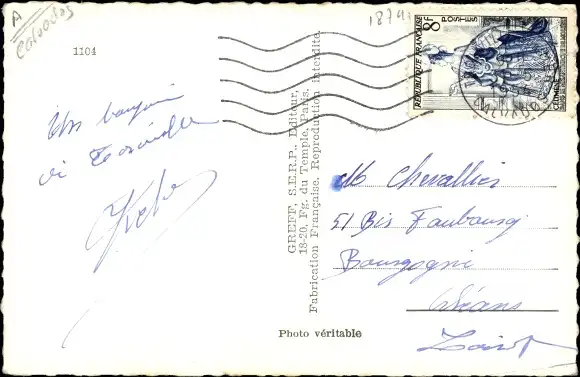 A
Calvados
1104
18791
8F
POSTES
REPUBLIQUE FRANÇAISE
Un bonjour
de Trouville
GREFF, S.E.R.P., Editeur,
18-20, Fg. du Temple, Paris.
Fabrication Française. Reproduction interdite.
Mr Chevallier
51 Bis Faubourg
Bourgogne
Orléans
Loiret
Photo véritable